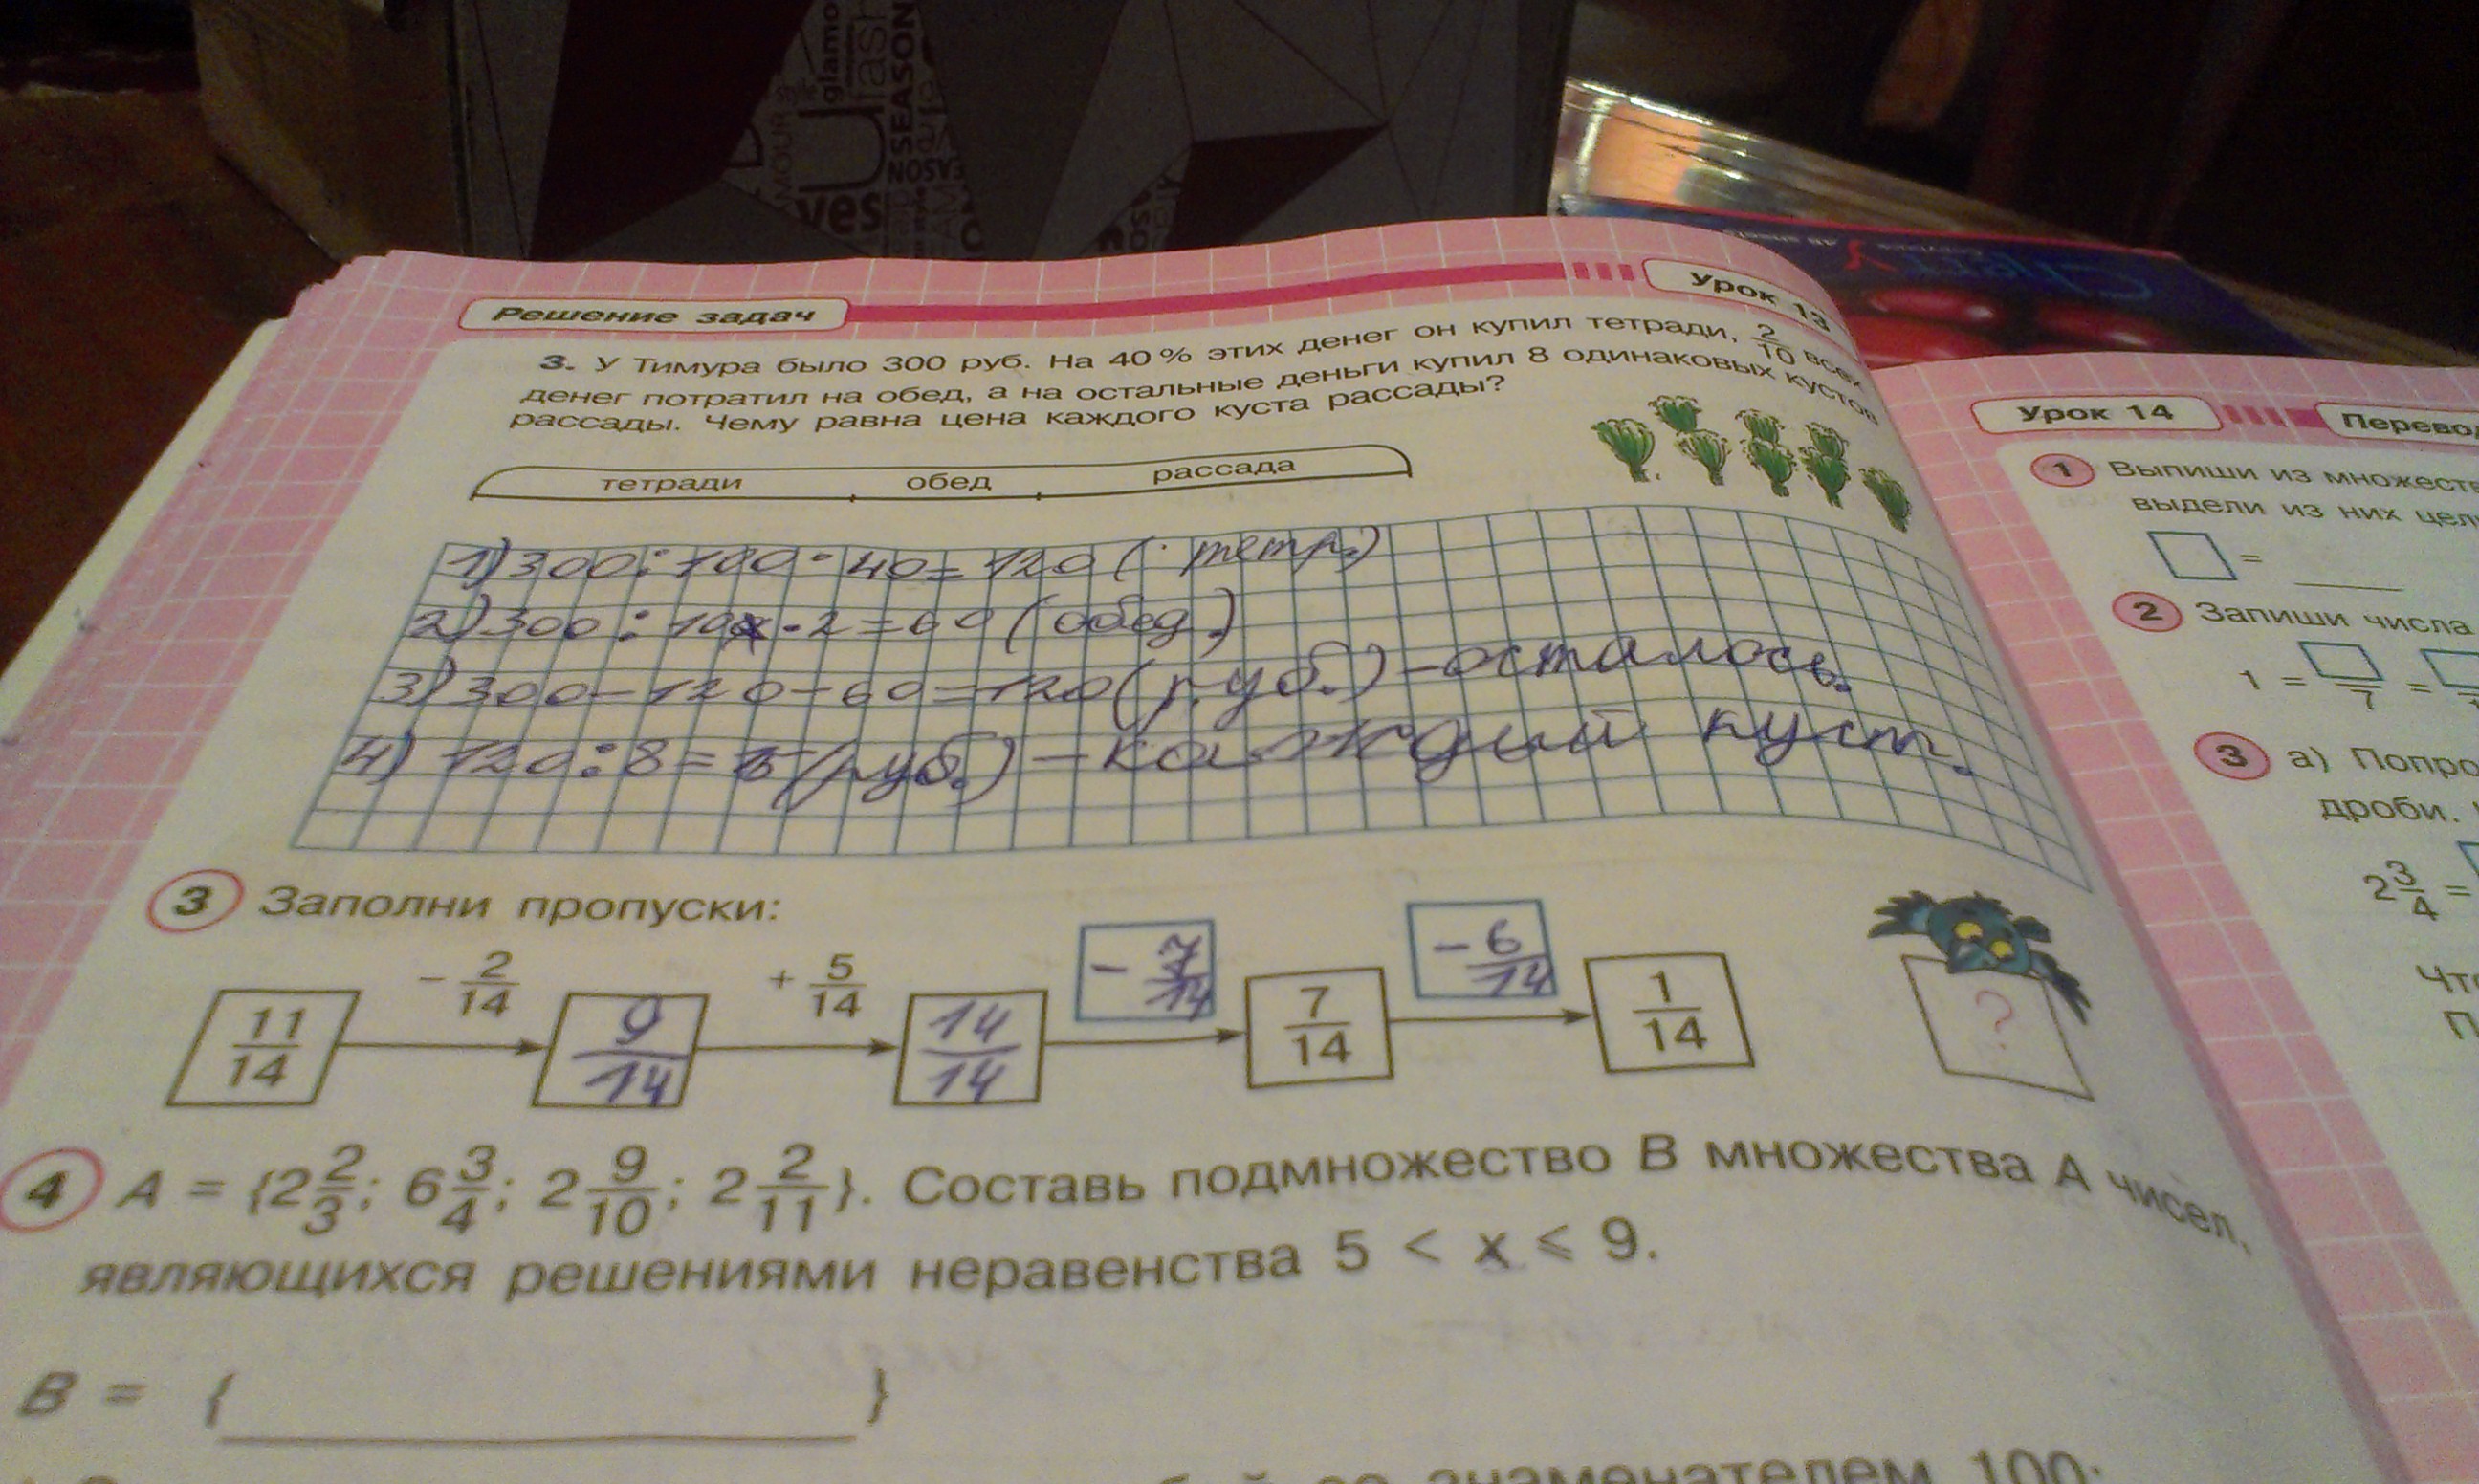 style
glamo
fash
U
SEASON
AMOUR
yes
NOSAE
Решение задач
Урок 13
3. У Тимура было 300 руб. На 40 % этих денег он купил тетради, 2/10 всех
денег потратил на обед, а на остальные деньги купил 8 одинаковых кустов
рассады. Чему равна цена каждого куста рассады?
тетради обед рассада
1) 300 : 100 · 40 = 120 (· тетр.)
2) 300 : 10 · 2 = 60 (обед.)
3) 300 - 120 - 60 = 120 (руб.) - осталось.
4) 120 : 8 = 15 (руб.) - каждый куст.
3 Заполни пропуски:
11/14 - 2/14 9/14 + 5/14 14/14 - 7/14 7/14 - 6/14 1/14 ?
4 A = {2 2/3; 6 3/4; 2 9/10; 2 2/11}. Составь подмножество B множества A чисел,
являющихся решениями неравенства 5 < x ⩽ 9.
B = { }
знаменателем 100:
Урок 14
Перевод
1 Выпиши из множеств
выдели из них цел
=
2 Запиши числа
1 = /7 =
3 а) Попро
дроби.
2 3/4 =
Что
П